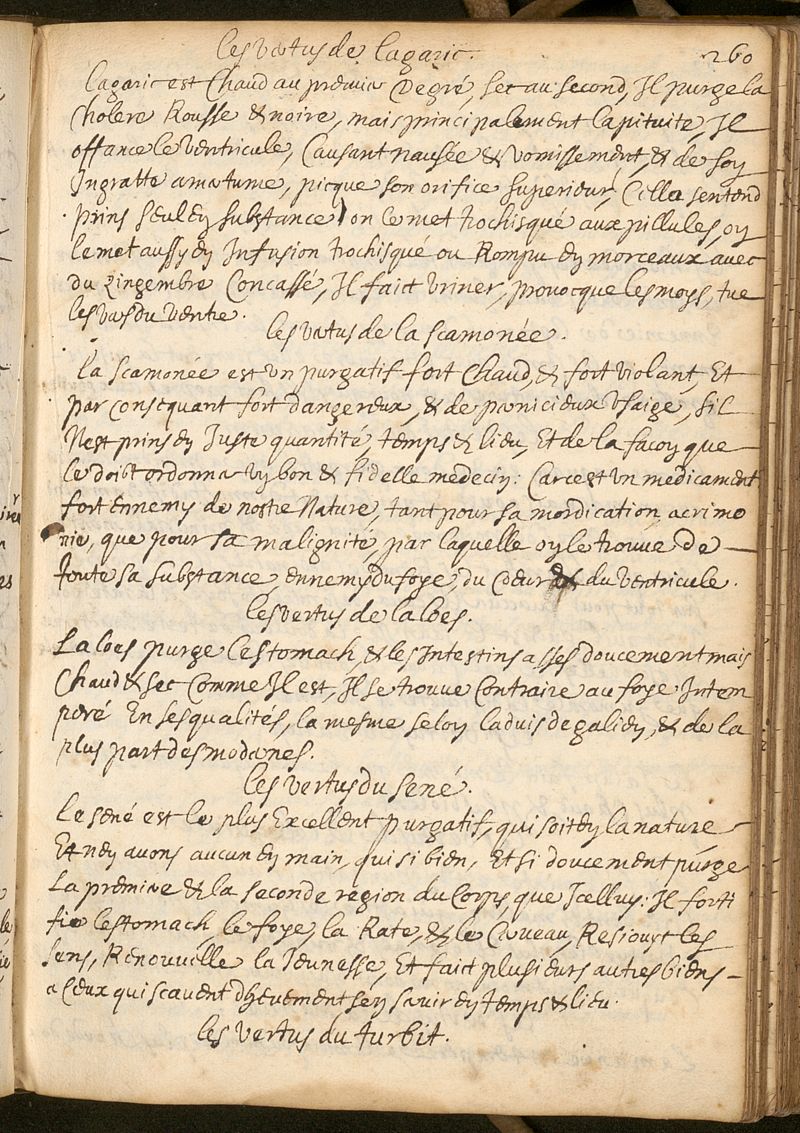 les vertus de lagaric.
260
lagaric est Chaud au premier Degré, sec au second, Il purge la
Cholere Rousse & noire, mais principalement la pituite, Il
offance le ventricule, Causant nausée & vomissement, & de soy
Ingratte amertume, picque son orifice superieur, Cella sentend
prins seul en substance, on le met trochisqué aux pillules, on
le met aussy en Infusion trochisqué ou Rompu en morceaux avec
du zingembre Concassé, Il faict vriner, provocque les moys, tue
les vers du ventre.
les vertus de la scamonée.
la scamonée est vn purgatif fort Chaud, & fort violant, Et
par consequant fort dangereux, & de pernicieux vsaige, sil
Nest prins en Juste quantité, temps & lieu, Et de la facon que
le doibt ordonner vn bon & fidelle medecin: Car cest vn medicament
fort ennemy de nostre Nature, tant pour sa mordication, acrimo
nie, que pour sa malignité, par laquelle on le trouve de
toute sa substance, ennemy du foye, du Cœur & du ventricule.
les vertus de laloes.
Laloes purge lestomach, & les Intestins asses doucement mais
Chaud & sec Comme Il est, Il se trouve Contraire au foye Intem
peré En ses qualités, la mesme selon ladvis de galien, & de la
plus part des modernes.
les vertus du sené.
Le sené est le plus Excellent purgatif, qui soit en la nature
Et nen avons aucun en main, qui si bien, Et si doucement purge
La premiere & la seconde region du Corps, que Icelluy: Il forti
fie lestomach le foye, la Rate, & le Cerveau, Resiouyt les
sens, Renouvelle la Jeunesse, Et faict plusieurs autres biens
a Ceux qui scavent dhevement sen servir en temps & lieu.
les vertus du turbit.